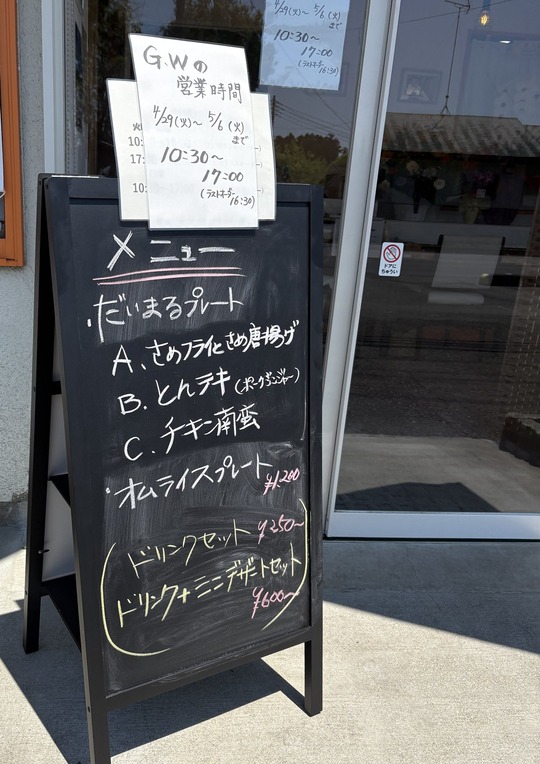 G.Wの
営業時間
4/29(火)～5/6(火)
まで
10:30～
17:00
(ラストオーダー
16:30)
メニュー
・だいまるプレート
A、さめフライとさめ唐揚げ
B、とんテキ(ポークジンジャー)
C、チキン南蛮
・オムライスプレート
¥1,200
ドリンクセット ¥250～
ドリンク+ミニデザートセット
¥600～
4/29(火)～5/6(火)
まで
10:30～
17:00
(ラストオーダー
16:30)
ドアに
ちゅうい